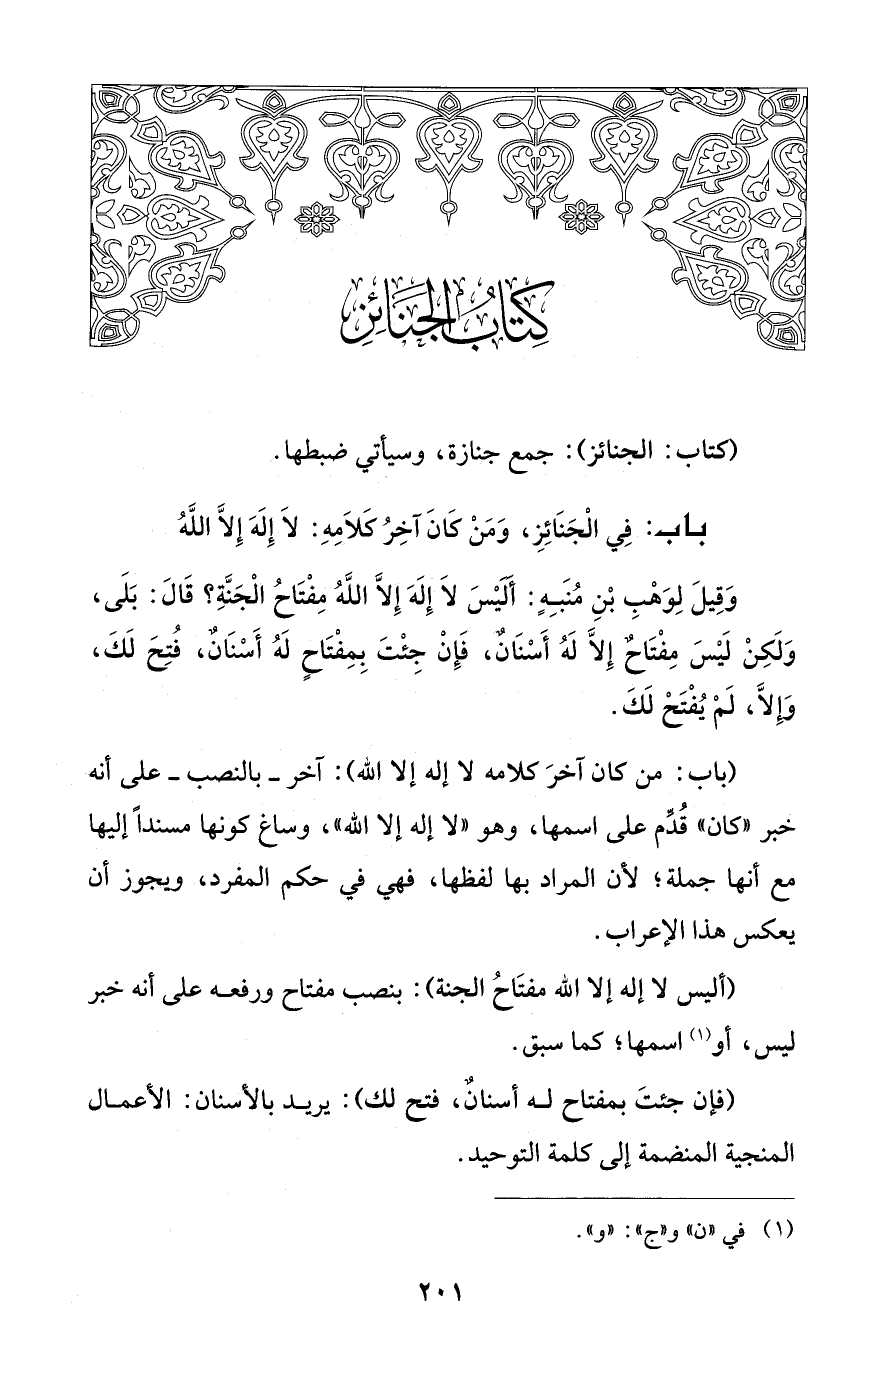 كِتَابُ الجَنَائِزِ
(كتاب: الجنائز): جمع جنازة، وسيأتي ضبطها.
باب: فِي الْجَنَائِزِ، وَمَنْ كَانَ آخِرُ كَلَامِهِ: لَا إِلَهَ إِلاَّ اللَّهُ
وَقِيلَ لِوَهْبِ بْنِ مُنَبِهٍ: أَلَيْسَ لَا إِلَهَ إِلاَّ اللَّهُ مِفْتَاحُ الْجَنَّةِ؟ قَالَ: بَلَى،
وَلَكِنْ لَيْسَ مِفْتَاحٌ إِلاَّ لَهُ أَسْنَانٌ، فَإِنْ جِئْتَ بِمِفْتَاحٍ لَهُ أَسْنَانٌ، فُتِحَ لَكَ،
وَإِلاَّ، لَمْ يُفْتَحْ لَكَ.
(باب: من كان آخرَ كلامه لا إله إلا الله): آخر ـ بالنصب ـ على أنه
خبر «كان» قُدِّم على اسمها، وهو «لا إله إلا الله»، وساغ كونها مسنداً إليها
مع أنها جملة؛ لأن المراد بها لفظها، فهي في حكم المفرد، ويجوز أن
يعكس هذا الإعراب.
(أليس لا إله إلا الله مفتَاحُ الجنة): بنصب مفتاح ورفعه على أنه خبر
ليس، أو(١) اسمها؛ كما سبق.
(فإن جئتَ بمفتاح له أسنانٌ، فتح لك): يريد بالأسنان: الأعمال
المنجية المنضمة إلى كلمة التوحيد.
(١) في «ن» و«ج»: «و».
٢٠١